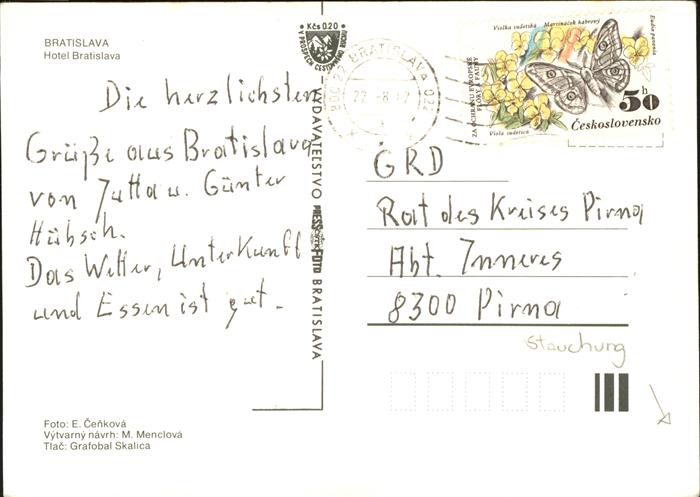 BRATISLAVA
Hotel Bratislava
Kčs 0.20
V PROSPECH CESTOVNÉHO RUCHU
Die herzlichsten
Grüße aus Bratislava
von Jutta u. Günter
Hübsch.
Das Wetter, Unterkunft
und Essen ist gut.
VYDAVATEĽSTVO
BRATISLAVA
BRATISLAVA 022
Violka sudetská
Martináček habrový
Eudia pavonia
ZA OCHRANU EVROPSKÉ
FLÓRY A FAUNY
Viola sudetica
50 h
Československo
GRD
Rat des Kreises Pirna
Abt. Inneres
8300 Pirna
Stauchung
Foto: E. Čeňková
Výtvarný návrh: M. Menclová
Tlač: Grafobal Skalica